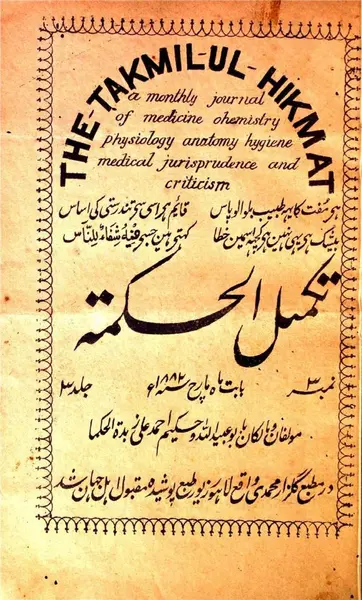 THE-TAKMIL-UL-HIKMAT
a monthly journal
of medicine chemistry
physiology anatomy hygiene
medical jurisprudence and
criticism
ہی مفت کا یہ طبیب بلوالو پاس قایم ہے اسی سے تندرستی کی اساس
بیشک ہی یہی نہین ہی کچہہ اسمین خطا کہتی ہین جسے فیہ شفاءٌ للناس
تکمیل الحکمتہ
نمبر ۳ بابت ماہ مارچ سنہ ۱۸۸۲ء جلد ۳
مولفان و مالکان ابو عبید اللہ و حکیم احمد علی زبدۃ الحکما
در مطبع گلزار محمدی واقع لاہور زیور طبع پوشیدہ مقبول اہل جہان شد